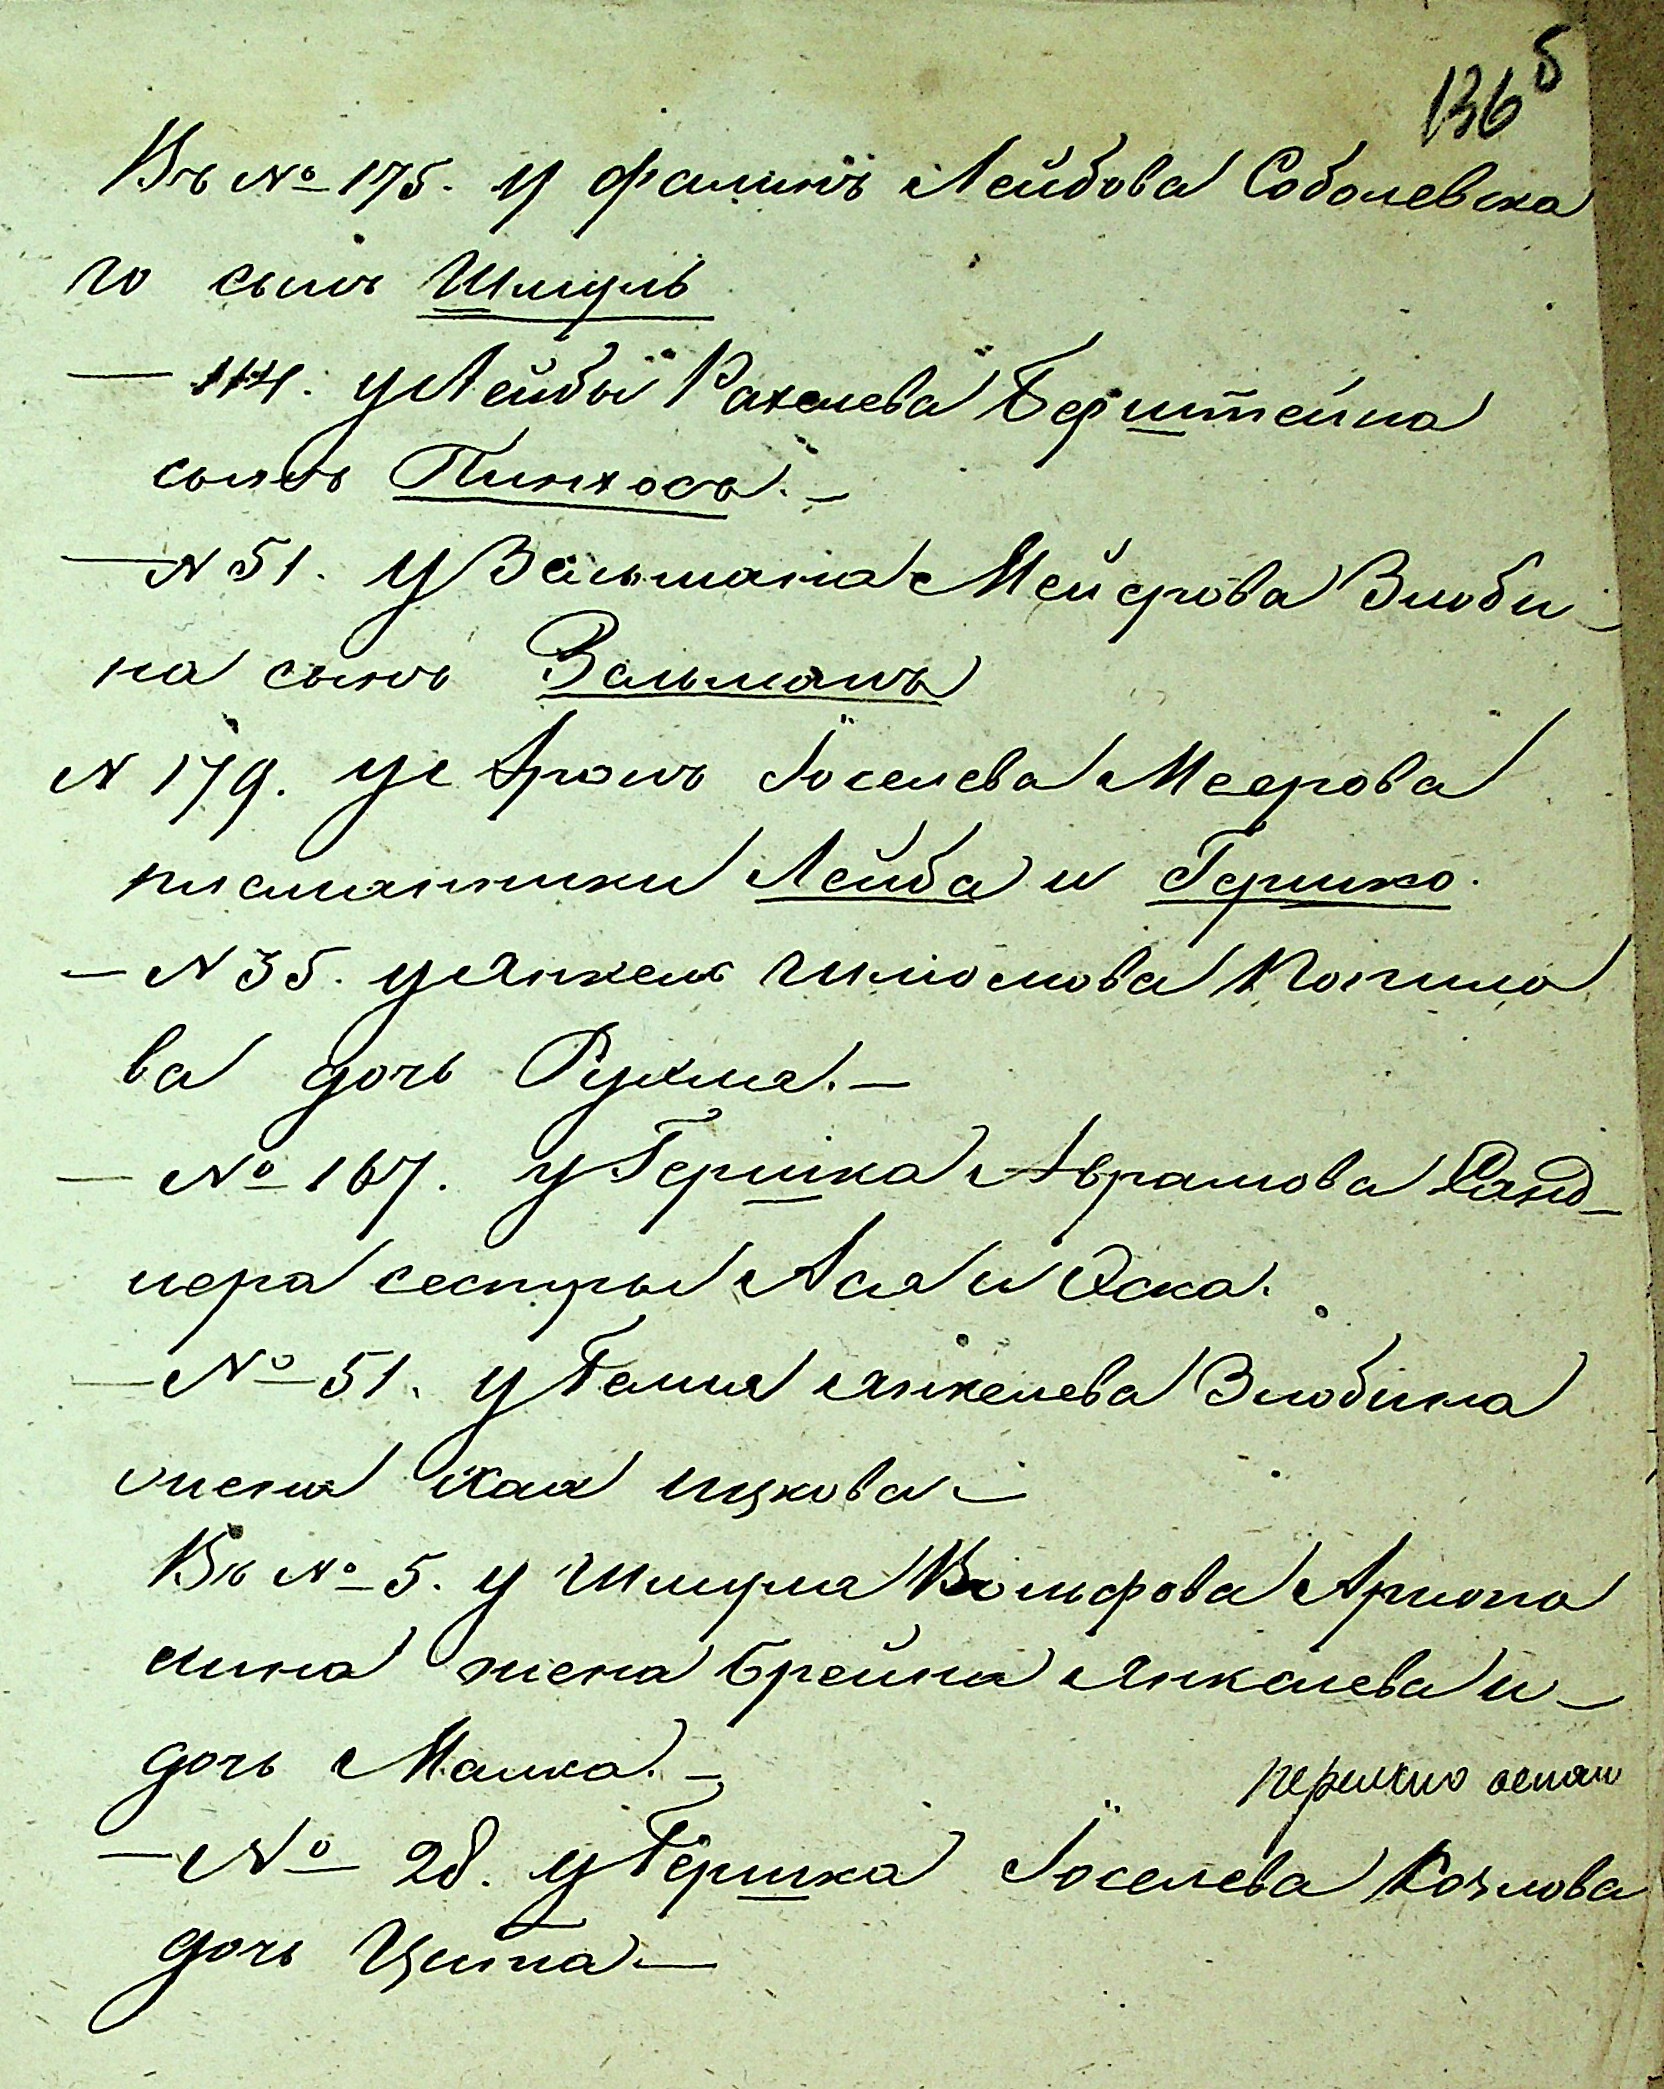 136 б
Въ № 175. у фалинъ Лейбова Соболевска
го сынъ Шмуль
— 114. у Лейбы Рахелева Берштейна
сынъ Пинхосъ. —
— N 51. у Зельмана Мейерова Злоби-
на сынъ Зельманъ
N 179. у Аронъ Іоселева Меерова
племянники Лейба и Гершко.
— N 35. у Янкеля Шліомова Копило
ва дочь Рухля. —
— № 167. у Гершка Аврамова Ланд-
нера сестры Ася и Эска.
— № 51. у Гелия Янкелева Злобина
жена Хая Ицкова —
Въ № 5. у Шмуля Вольфова Арлопа
сина жена Брейна Янкелева и —
дочь Малка. —
— № 28. у Гершка Іоселева Козлова
дочь Ципа —